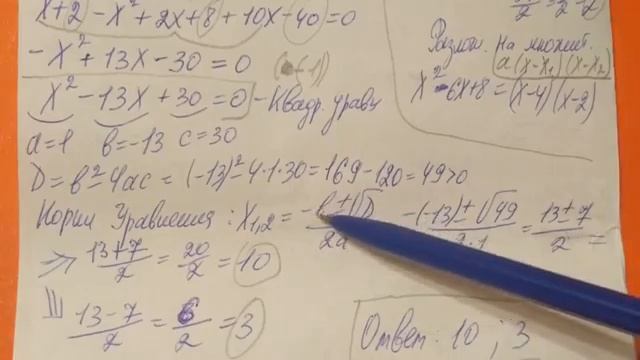 x+2 -x²+2x+8+10x-40=0
-x²+13x-30=0 (·(-1))
x²-13x+30=0 - Квадр. уравн
a=1 в=-13 c=30
D=в²-4ac=(-13)²-4·1·30=169-120=49>0
Корни Уравнения: X₁,₂ = (-в±√D)/2a -(-13)±√49/2·1 = 13±7/2 =
=> 13+7/2 = 20/2 = 10
13-7/2 = 6/2 = 3
Ответ: 10 ; 3
Разлож. на множит.
a(x-x₁)(x-x₂)
x²-6x+8=(x-4)(x-2)